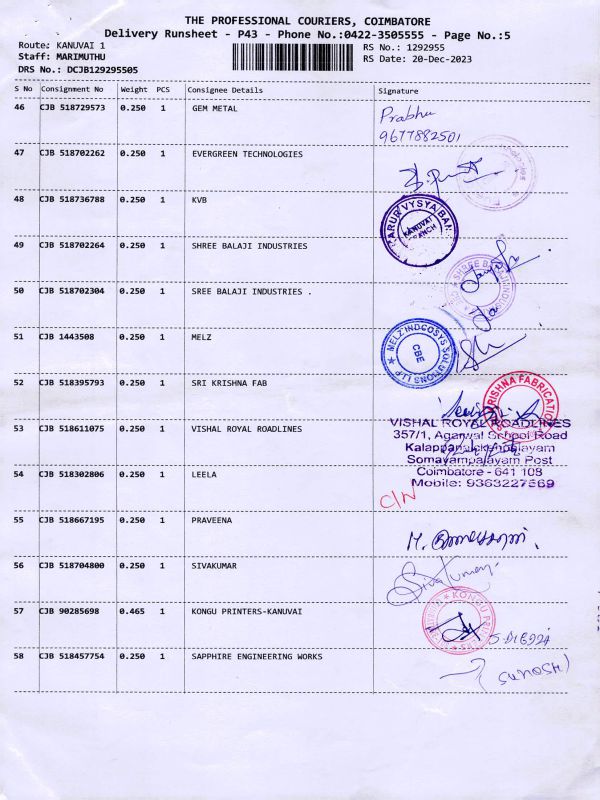 THE PROFESSIONAL COURIERS, COIMBATORE
Delivery Runsheet - P43 - Phone No.:0422-3505555 - Page No.:5
Route: KANUVAI 1
Staff: MARIMUTHU
DRS No.: DCJB129295505
RS No.: 1292955
RS Date: 20-Dec-2023
S No Consignment No Weight PCS Consignee Details Signature
46 CJB 518729573 0.250 1 GEM METAL
Prabhu
9677882501
47 CJB 518702262 0.250 1 EVERGREEN TECHNOLOGIES
48 CJB 518736788 0.250 1 KVB
KARUR VYSYA BANK
KANUVAI
BRANCH
49 CJB 518702264 0.250 1 SHREE BALAJI INDUSTRIES
SHREE BALAJI INDUSTRIES
50 CJB 518702304 0.250 1 SREE BALAJI INDUSTRIES .
51 CJB 1443508 0.250 1 MELZ
MELZ INDCOSYS SOLUTIONS LLP
CBE
52 CJB 518395793 0.250 1 SRI KRISHNA FAB
KRISHNA FABRICATION
53 CJB 518611075 0.250 1 VISHAL ROYAL ROADLINES
VISHAL ROYAL ROADLINES
357/1, Agarwal School Road
Somayampalayam Post
Coimbatore - 641 108
Mobile: 9363227569
54 CJB 518302806 0.250 1 LEELA
C/N
55 CJB 518667195 0.250 1 PRAVEENA
56 CJB 518704800 0.250 1 SIVAKUMAR
Sivakumar
57 CJB 90285698 0.465 1 KONGU PRINTERS-KANUVAI
KONGU PRINTERS
58 CJB 518457754 0.250 1 SAPPHIRE ENGINEERING WORKS